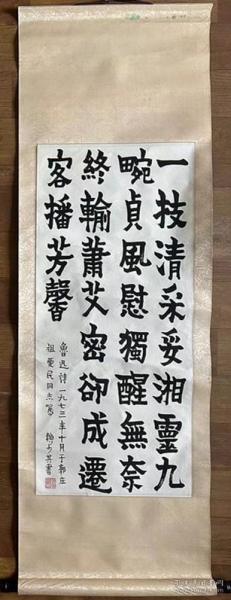 一枝清采妥湘靈九
畹貞風慰獨醒無奈
終輸蕭艾密卻成遷
客播芳馨
魯迅诗一九七三年十月于郭庄
民同志属
書